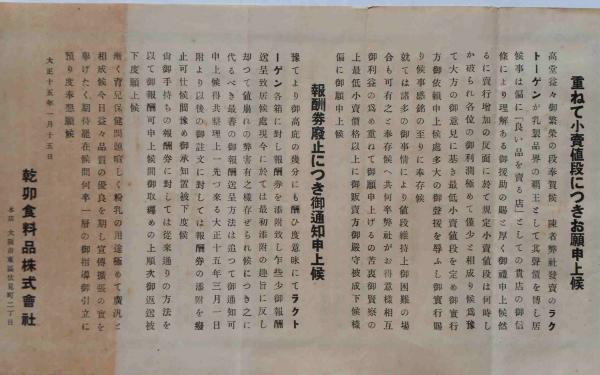 重ねて小賣値段につきお願申上候
高堂益々御繁榮の段奉賀候 陳者弊社發賣のラク
トーゲンが乳製品界の覇王として其聲價を博し居
候事は偏に「良い品を賣る店」としての貴店の御信
條により理解ある御援助の賜と厚く御禮申上候然
るに賣行增加の反面に於て規定小賣値段は何時し
か破られ各位の御利潤極めて僅少と相成り候爲豫
て大方の御意見に基き最低小賣値段を定め御實行
方御依頼申上候處多大の御聲援を辱ふし御實行賜
り候事感銘の至りに奉存候
就ては諸多の御事情により値段維持上御困難の場
合も可有之と奉存候へ共何卒弊社がお得意樣相互
御利益の爲め重ねて御願申上げるの苦衷御賢察の
上最低小賣價格以上に御販賣方御嚴守被成下候樣
偏に御願申上候
報酬券廢止につき御通知申上候
豫てより御高庇の幾分にも酬ひ度意味にてラクト
ーゲン各箱に對し報酬券を添附致し乍些少御報酬
送呈致居候處現今に於ては最初添附の趣旨に反し
却つて値崩れの弊害有之樣存ぜられ候につき之に
代るべき最善の御報酬送呈方法は追つて御通知可
申上候得共整理上一先づ來る大正十五年三月一日
附より以後の御註文に對しては報酬券の添附を癈
止可仕候間豫め御承知置被下度候
尚御手持ちの報酬券に對しては從來通りの方法を
以て御報酬可申上候間御取纏めの上順次御返送被
下度願上候
漸く育兒保健問題喧しく粉乳の用途極めて廣汎と
相成候今日益々品質の優良を期し宣傳擴張の實を
擧げたく期待罷在候間何卒一層の御指導御引立に
預り度奉懇願候
大正十五年一月十五日
乾卯食料品株式會社
本店 大阪市東區伏見町二丁目